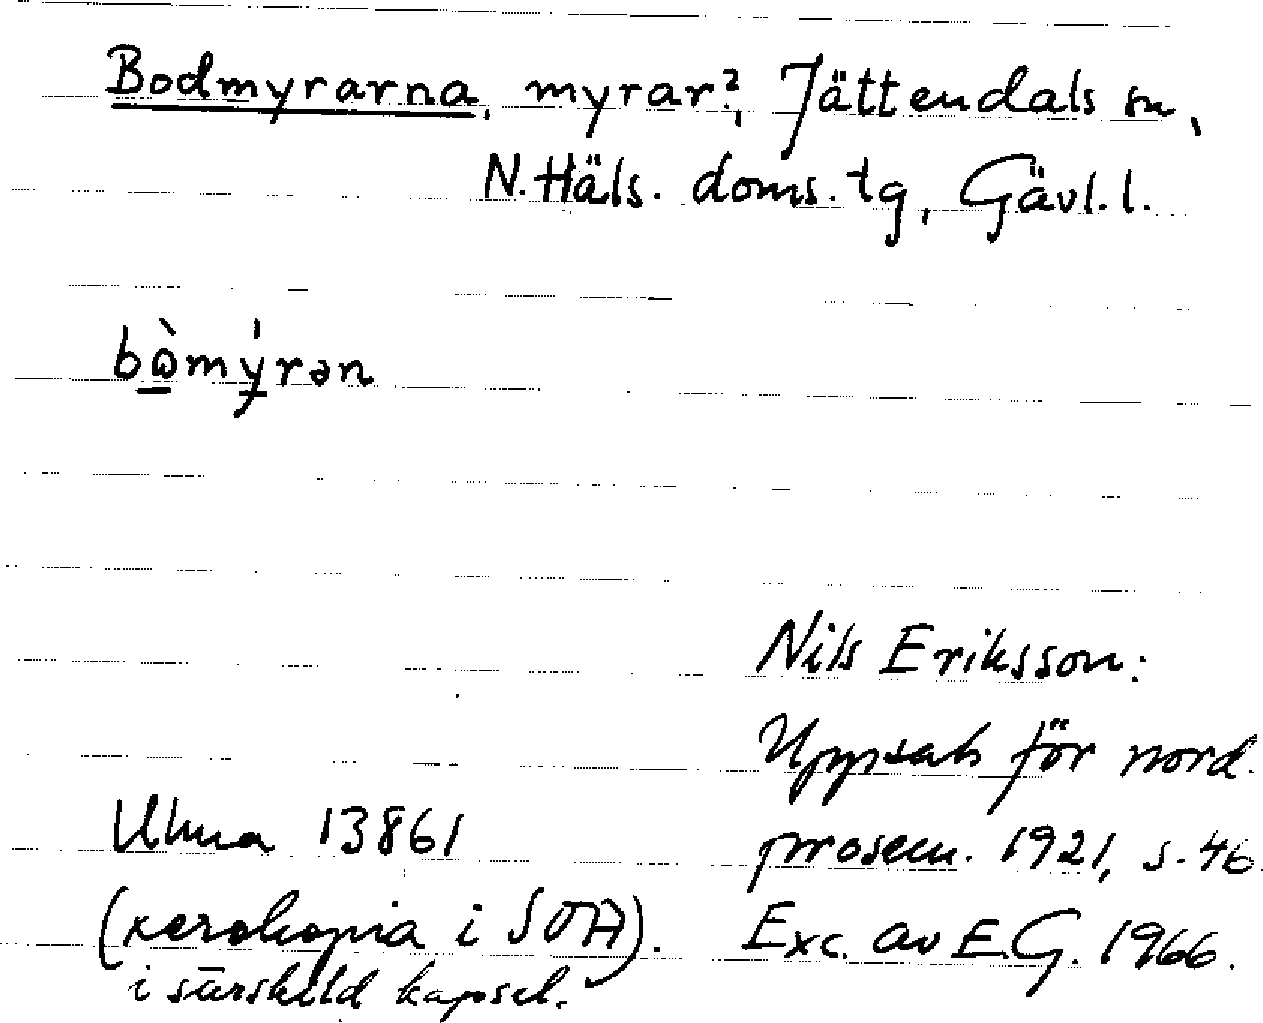 Bodmyrarna, myrar?, Jättendals sn,
N. Häls. doms. tg, Gävl. l.
bòmýrən
Nils Eriksson:
Uppsats för nord.
prosem. 1921, s. 46.
Exc. av E.G. 1966.
Ulma 13861
(xerokopia i SOA).
i särskild kapsel.